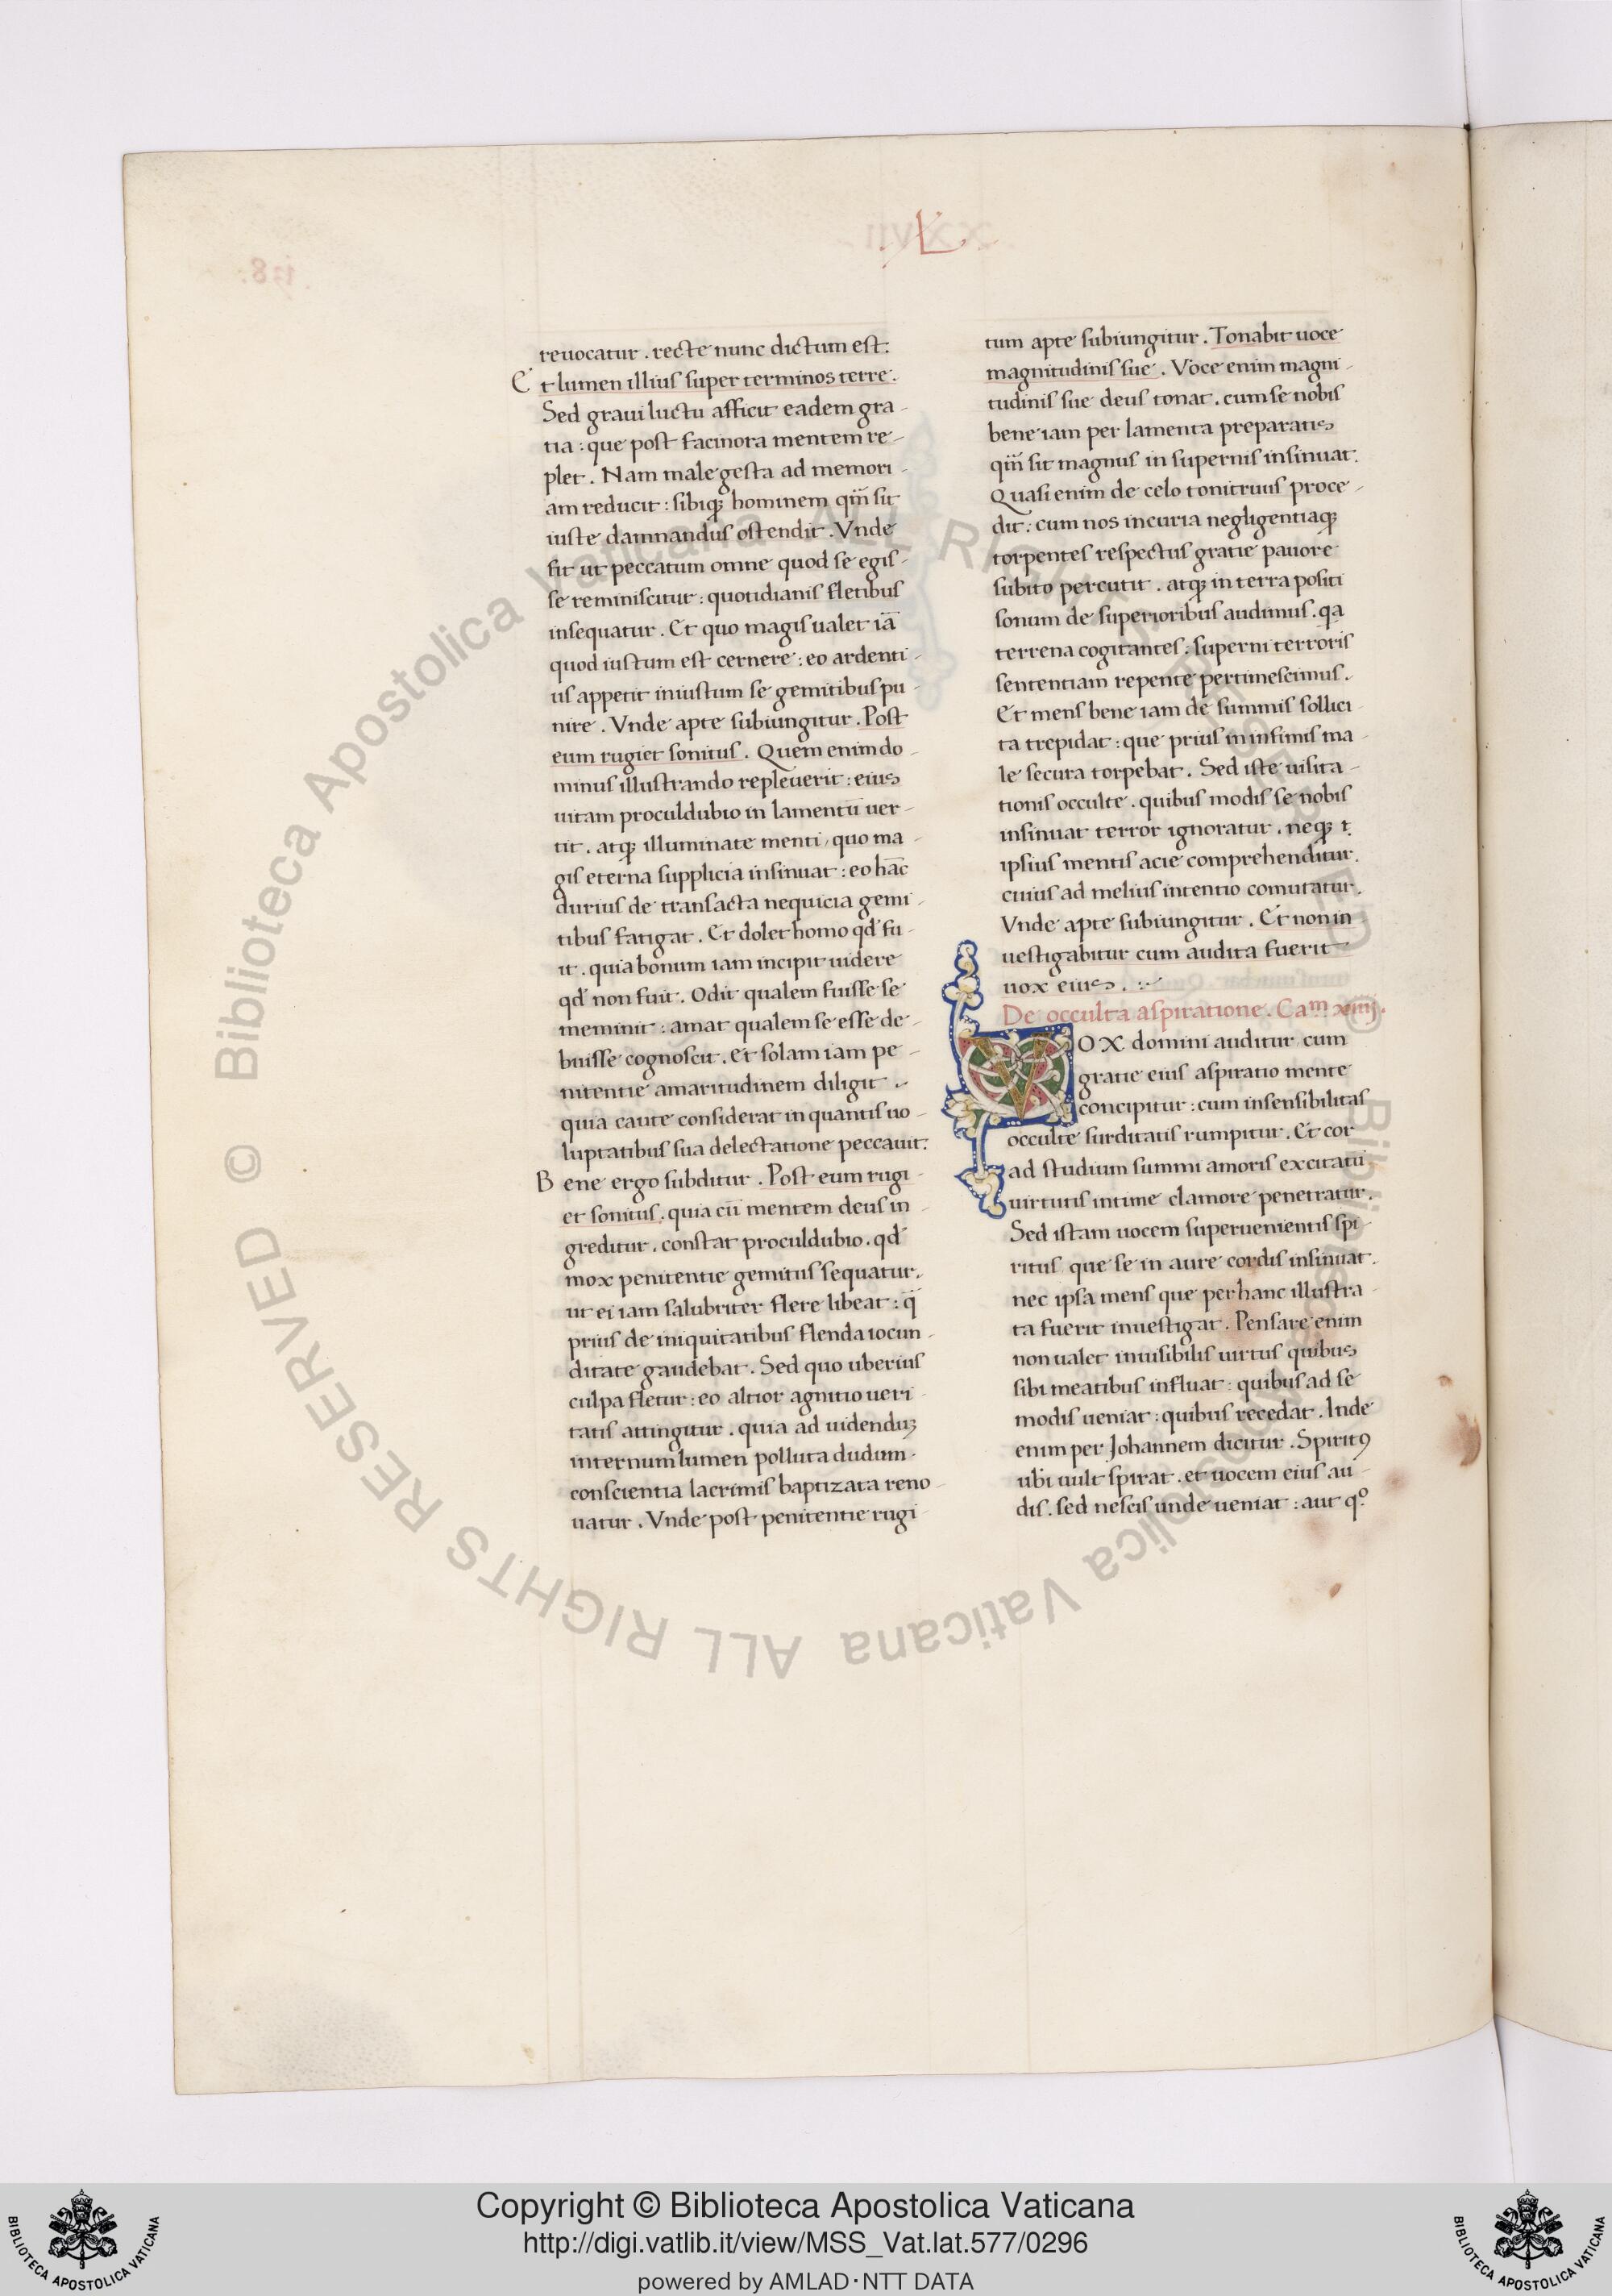 .L.
reuocatur . recte nunc dictum est.
Et lumen illius super terminos terre.
Sed graui luctu afficit eadem gra-
tia : que post facinora mentem re-
plet . Nam male gesta ad memori-
am reducit : sibiqꝫ hominem qm̅ sit
iuste damnandus ostendit . Vnde
fit ut peccatum omne quod se egis-
se reminiscitur : quotidianis fletibus
insequatur . Et quo magis ualet ia̅
quod iustum est cernere : eo ardenti-
us appetit iniustum se gemitibus pu-
nire . Vnde apte subiungitur . Post
eum rugiet sonitus . Quem enim do-
minus illustrando repleuerit : eius
uitam proculdubio in lamentu̅ uer-
tit . atqꝫ illuminate menti, quo ma-
gis eterna supplicia insinuat : eo ha̅c
durius de transacta nequicia gemi-
tibus fatigat . Et dolet homo qd̅ fu-
it . quia bonum iam incipit uidere
qd̅ non fuit . Odit qualem fuisse se
meminit : amat qualem se esse de-
buisse cognoscit . et solam iam pe-
nitentie amaritudinem diligit .
quia caute considerat in quantis uo-
luptatibus sua delectatione peccauit.
Bene ergo subditur . Post eum rugi-
et sonitus : quia cu̅ mentem deus in-
greditur . constat proculdubio . qd̅
mox penitentie gemitus sequatur .
ut ei iam salubriter flere libeat : q̅
prius de iniquitatibus flenda iocun-
ditate gaudebat . Sed quo uberius
culpa fletur : eo altior agnitio ueri-
tatis attingitur . quia ad uidenduꝫ
internum lumen polluta dudum
conscientia lacrimis baptizata reno-
uatur . Vnde post penitentie rugi-
tum apte subiungitur . Tonabit uoce
magnitudinis sue . Voce enim magni-
tudinis sue deus tonat . cum se nobis
bene iam per lamenta preparatis
qm̅ sit magnus in supernis insinuat.
Quasi enim de celo tonitruus proce-
dit : cum nos incuria negligentiaqꝫ
torpentes respectus gratie pauore
subito percutit . atqꝫ in terra positi
sonum de superioribus audimus . qa
terrena cogitantes : superni terroris
sententiam repente pertimescimus .
Et mens bene iam de summis sollici-
ta trepidat : que prius in infimis ma-
le secura torpebat . Sed iste uisita-
tionis occulte . quibus modis se nobis
insinuat terror ignoratur . neqꝫ t.
ipsius mentis acie comprehenditur.
cuius ad melius intentio comutatur.
Vnde apte subiungitur . Et non in-
uestigabitur cum audita fuerit
uox eius .
De occulta aspiratione . Cam xiiij.
VOX domini auditur cum
gratie eius aspiratio mente
concipitur : cum insensibilitas
occulte surditatis rumpitur . Et cor
ad studium summi amoris excitatu̅
uirtutis intime clamore penetratur .
Sed istam uocem superuenientis spi-
ritus que se in aure cordis insinuat .
nec ipsa mens que per hanc illustra-
ta fuerit inuestigat . Pensare enim
non ualet inuisibilis uirtus quibus
sibi meatibus influat : quibus ad se
modis ueniat : quibus recedat . Inde
enim per Johannem dicitur . Spiritꝰ
ubi uult spirat . et uocem eius au-
dis . sed nescis unde ueniat : aut qͦ
© Biblioteca Apostolica Vaticana ALL RIGHTS RESERVED © Biblioteca Apostolica Vaticana ALL RIGHTS RESERVED
Copyright © Biblioteca Apostolica Vaticana
http://digi.vatlib.it/view/MSS_Vat.lat.577/0296
powered by AMLAD·NTT DATA
BIBLIOTECA APOSTOLICA VATICANA
BIBLIOTECA APOSTOLICA VATICANA